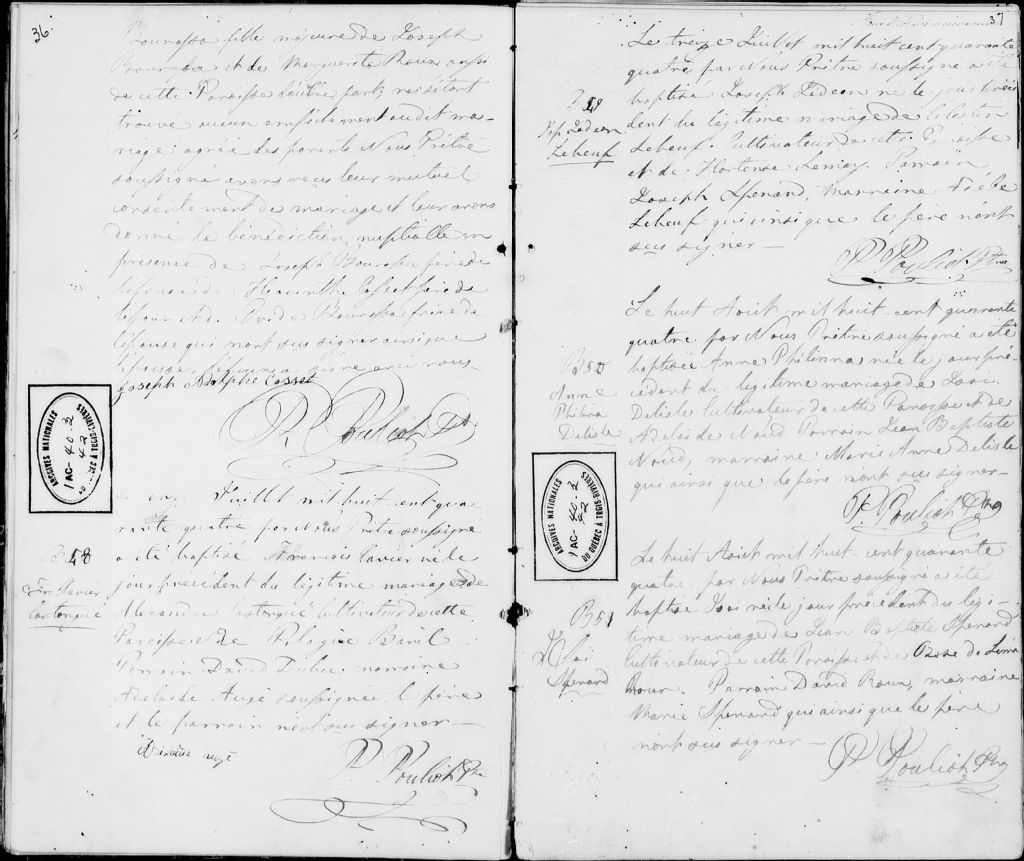 36.
Bourassa fille mineure de Joseph
Bourassa et de Marguerite Roux aussi
de cette Paroisse d'autre part; ne s'étant
trouvé aucun empêchement audit ma-
riage; agrée des parents Nous Prêtre
soussigné avons reçu leur mutuel
consentement de mariage et leur avons
donné la bénédiction nuptialle en
présence de Joseph Bourassa père de
l'épouse de Hyacinthe Cosset père de
l'époux et de Bourassa frère de
l'épouse qui n'ont su signer ainsi que
l'épouse, l'époux a signé avec nous
Joseph Adolphe Cosset
P. Pouliot Ptre
ARCHIVES NATIONALES
1 AC- 40.2
42
DU QUÉBEC À TROIS-RIVIÈRES
Le onze Juillet mil huit-cent qua-
rante quatre par nous Prêtre soussigné
B 48
a été baptisé François Xavier né le
Fr Xavier
jour précédent du légitime mariage de
Castonguè
Alexandre Castonguè cultivateur de cette
Paroisse et de Pélagie Baril
Parrain David Dubuc marraine
Adelaide Augé soussignée, le père
et le parrain n'ont su signer
augé
P. Pouliot Ptre
37
Le treize Juillet mil huit cent quarante
quatre par Nous Prêtre soussigné a été
B 49
baptisé Joseph Zedeon né le jour précé
Jph Zedeon
dent du légitime mariage de Célestin
Lebeuf
Lebeuf Cultivateur de cette Paroisse
et de Hortense Lemay. Parrain
Joseph Spenard, marraine Adèle
Lebeuf qui ainsi que le père n'ont
su signer
P. Pouliot Ptre
Le huit Août mil huit-cent quarante
quatre par Nous Prêtre soussigné a été
B 50
baptisée Anne Philinna née le jour pré-
Anne
cédent du légitime mariage de Loui
Philina
Delisle Cultivateur de cette Paroisse et de
Delisle
Adelaide Naud Parrain Jean Baptiste
Naud, marraine Marie Anne Delisle
qui ainsi que le père n'ont su signer
P. Pouliot Ptre
ARCHIVES NATIONALES
1 AC- 40.2
42
DU QUÉBEC À TROIS-RIVIÈRES
Le huit Août mil huit-cent quarante
quatre par Nous Prêtre soussigné a été
B 51
baptisé Loui né le jour précédent du légi-
time mariage de Jean Baptiste Spenard
Loi
Cultivateur de cette Paroisse et de Rose de Lima
Spenard
Roux. Parrain David Roux, marraine
Marie Spenard qui ainsi que le père
n'ont su signer
P. Pouliot Ptre